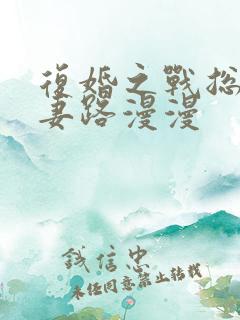 復婚之戰总
妻路漫漫
钱信忠
未经同意禁止转载